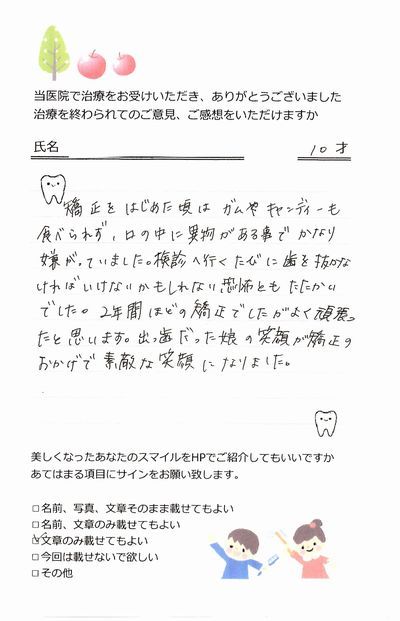 当医院で治療をお受けいただき、ありがとうございました
治療を終わられてのご意見、ご感想をいただけますか
氏名
10才
矯正をはじめた頃はガムやキャンディーも
食べられず、口の中に異物がある事でかなり
嫌がっていました。検診へ行くたびに歯を抜かな
ければいけないかもしれない恐怖ともたたかい
でした。2年間ほどの矯正でしたがよく頑張っ
たと思います。出っ歯だった娘の笑顔が矯正の
おかげで素敵な笑顔になりました。
美しくなったあなたのスマイルをHPでご紹介してもいいですか
あてはまる項目にサインをお願い致します。
□名前、写真、文章そのまま載せてもよい
□名前、文章のみ載せてもよい
☑文章のみ載せてもよい
□今回は載せないで欲しい
□その他